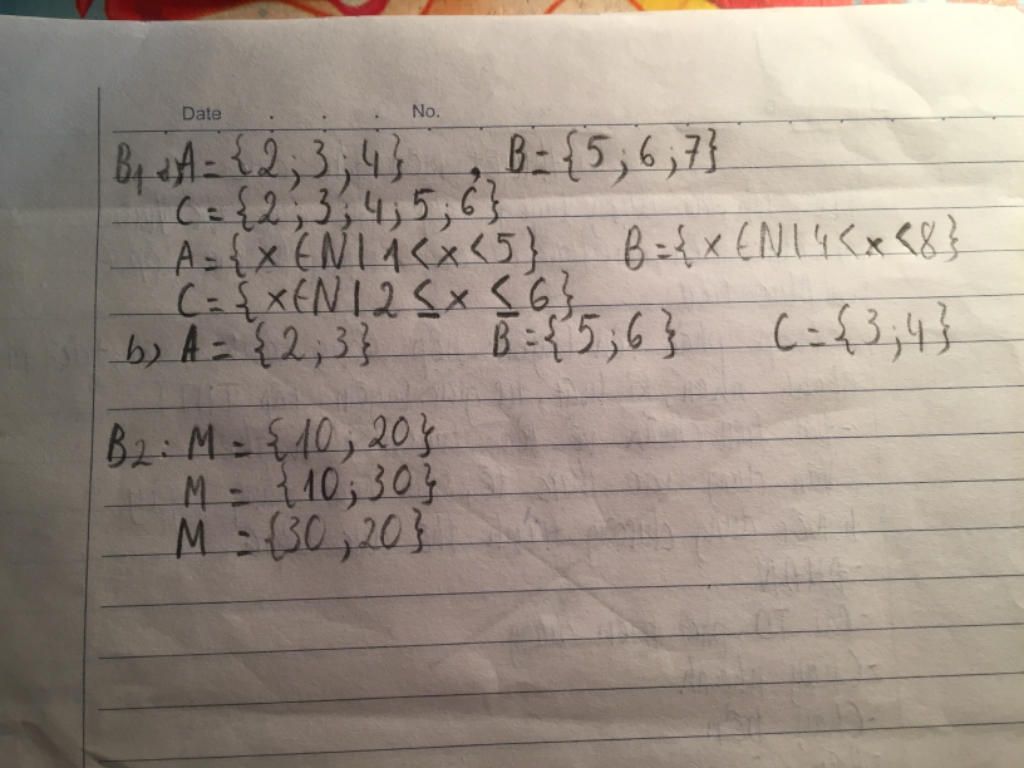 Date . . . No.
B1 a) A = {2 ; 3 ; 4} , B = {5 ; 6 ; 7}
C = {2 ; 3 ; 4 ; 5 ; 6}
A = {x ∈ N | 1 < x < 5} B = {x ∈ N | 4 < x < 8}
C = {x ∈ N | 2 ≤ x ≤ 6}
b) A = {2 ; 3} B = {5 ; 6} C = {3 ; 4}
B2 : M = {10 ; 20}
M = {10 ; 30}
M = {30 ; 20}